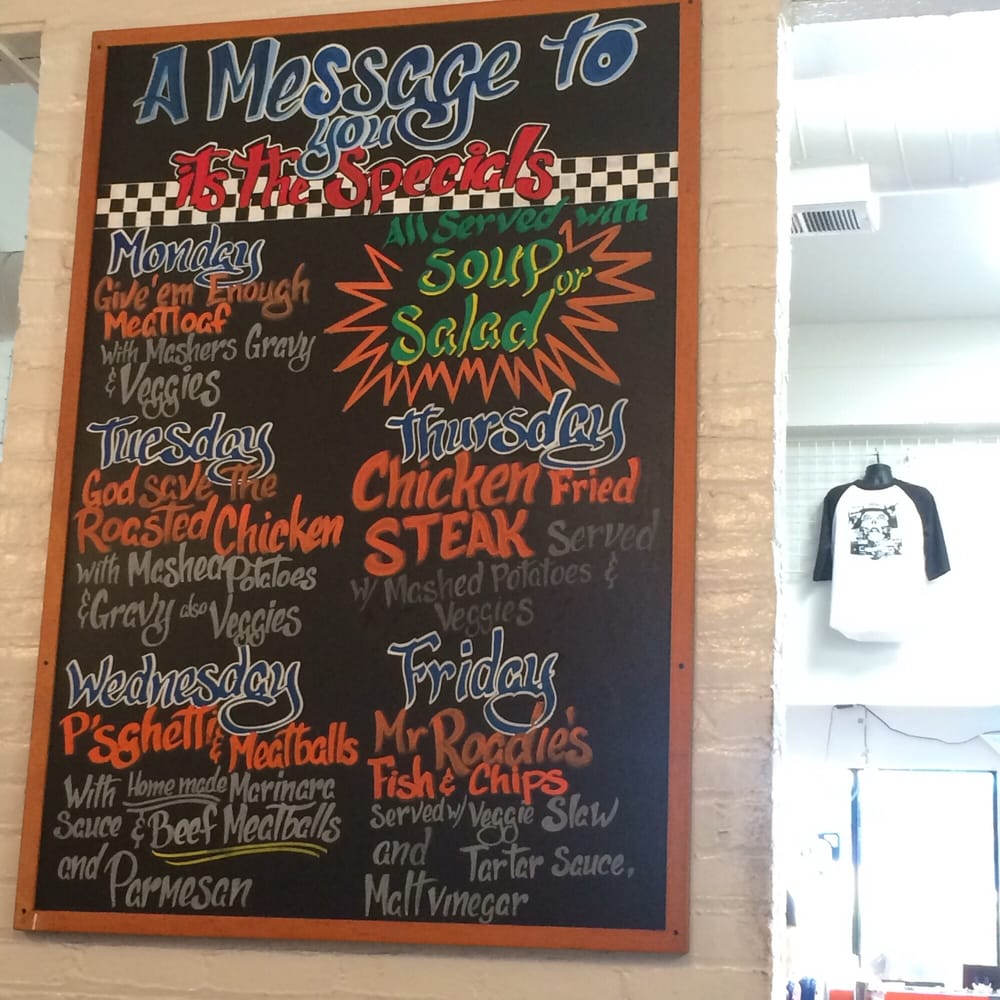 A Message to
you
it's the Specials
All Served with
Soup or
Salad
Monday
Give 'em Enough
Meatloaf
With Mashers Gravy
& Veggies
Tuesday
God save The
Roasted Chicken
with Mashed Potatoes
& Gravy also Veggies
Wednesday
P'sghetti &
Meatballs
With Home made Marinara
Sauce & Beef Meatballs
and Parmesan
Thursday
Chicken Fried
STEAK Served
w/ Mashed Potatoes &
Veggies
Friday
Mr Roadie's
Fish & Chips
Served w/ Veggie Slaw
and Tartar Sauce,
Malt vinegar